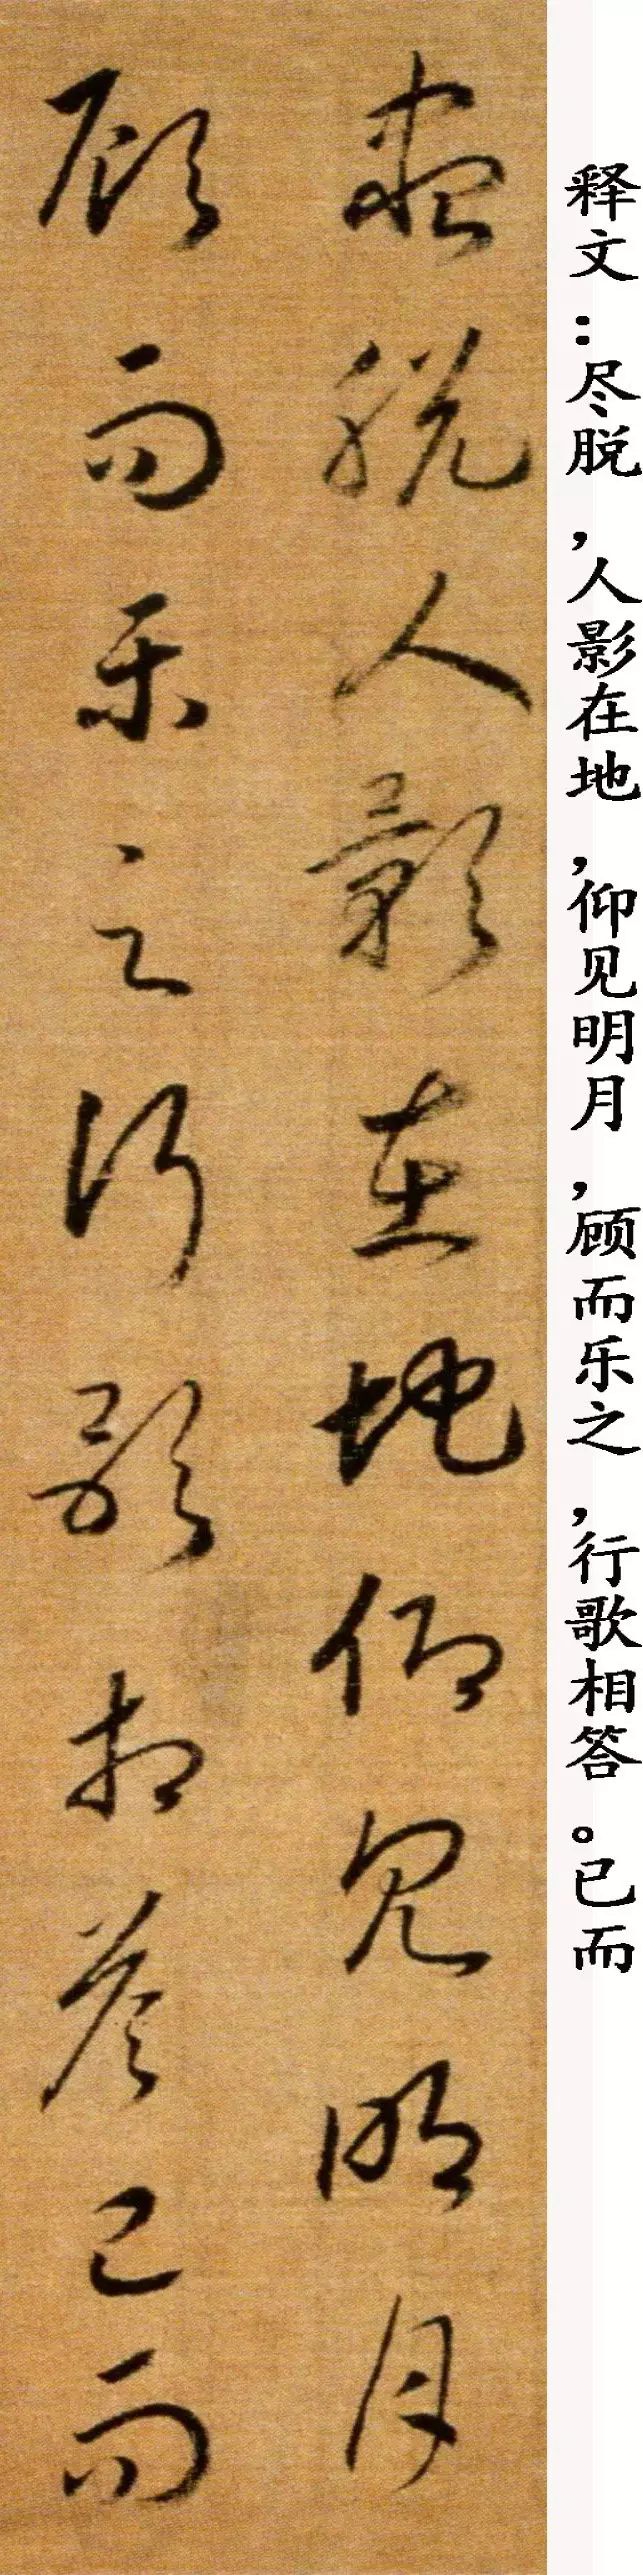 释文：尽脱，人影在地，仰见明月，顾而乐之，行歌相答。已而
盡脱人影在地仰見明月
顧而乐之行歌相答已而